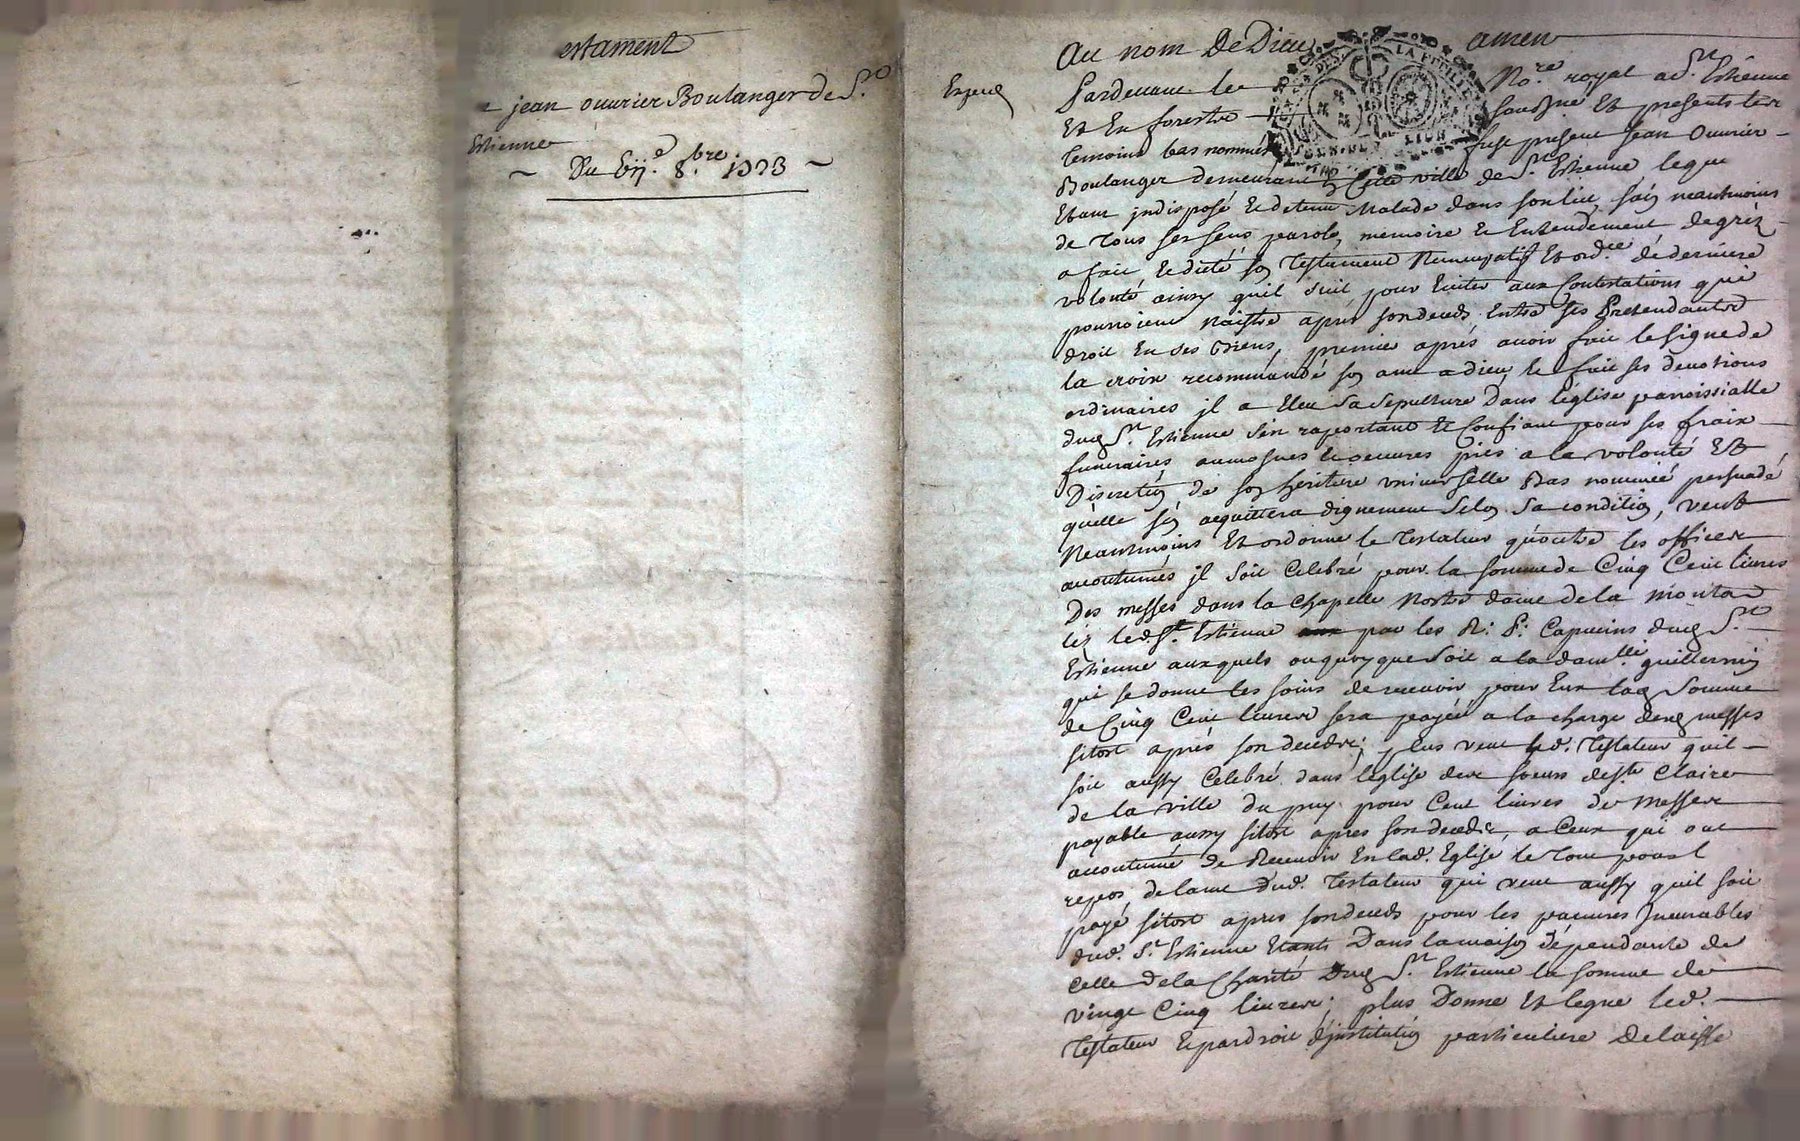 estament
jean ouurier Boulanger de St.
Estienne
Du 8.bre
Au nom De Dieu amen
Expedé
Pardeuant le No.re royal a St. Estienne
Et En forestz soussigné Et presents les
temoins bas nommés fust present Jean Ouurier
Boulanger demeurant en Cette ville de St. Estienne, leque
Etant jndisposé et detenu Malade dans son lict, sain neantmoins
de tous ses sens parole, memoire et Entendement de gréz
a fait et dicté son Testament Nuncupatif Et ord.ce de derniere
volonté ainsy quil suit pour Euiter aux Contestations qui
pourroient Naistre aprés son deceds Entre ses Pretendants
droit En ses Biens, premier aprés auoir fait le signe de
la croix recommandé son ame a dieu et fait ses deuotions
ordinaires jl a Eleu sa sepulture Dans l'églize parroissialle
dud St. Estienne s'en raportant et Confiant pour ses fraix
funeraires aumosnes et oeuures pies a la volonté Et
Discretion de son heritiere vniuerselle Bas nommée persuadé
qu'elle s'en acquittera dignement selon sa condition, veut
Neantmoins Et ordonne le Testateur qu'outre les offices
accoutumés jl soit Celebré pour la somme de Cinq Cent liures
Des messes dans la Chapelle Nostre dame de la montat
léz led. St. Estienne par les R: P: Capucins dud St.
Estienne auxquels ou quoy que soit a la dam.lle guillermin
qui se donne les soins de receuoir pour Eux lad somme
de Cinq Cent liures sera payéé a la charge desd messes
sitost aprés son decedz; plus veut led. Testateur quil
soit aussy Celebré dans leglise des soeurs de Ste Claire
de la ville du puy pour Cent liures de Messes
payable aussy sitost apres son decedz, a Ceux qui ont
accoutumé de Receuoir En lad. Eglise le tout pour l
repos de lame dud. Testateur qui veut aussy quil soit
payé sitost apres son deceds pour les pauures Jncurables
dud. St. Estienne Etants Dans la maison dépendante de
Celle de la Charité Dud St. Estienne la somme de
vingt Cinq liures; plus Donne Et legue led.
Testateur et par droit d'jnstitution particuliere Delaisse